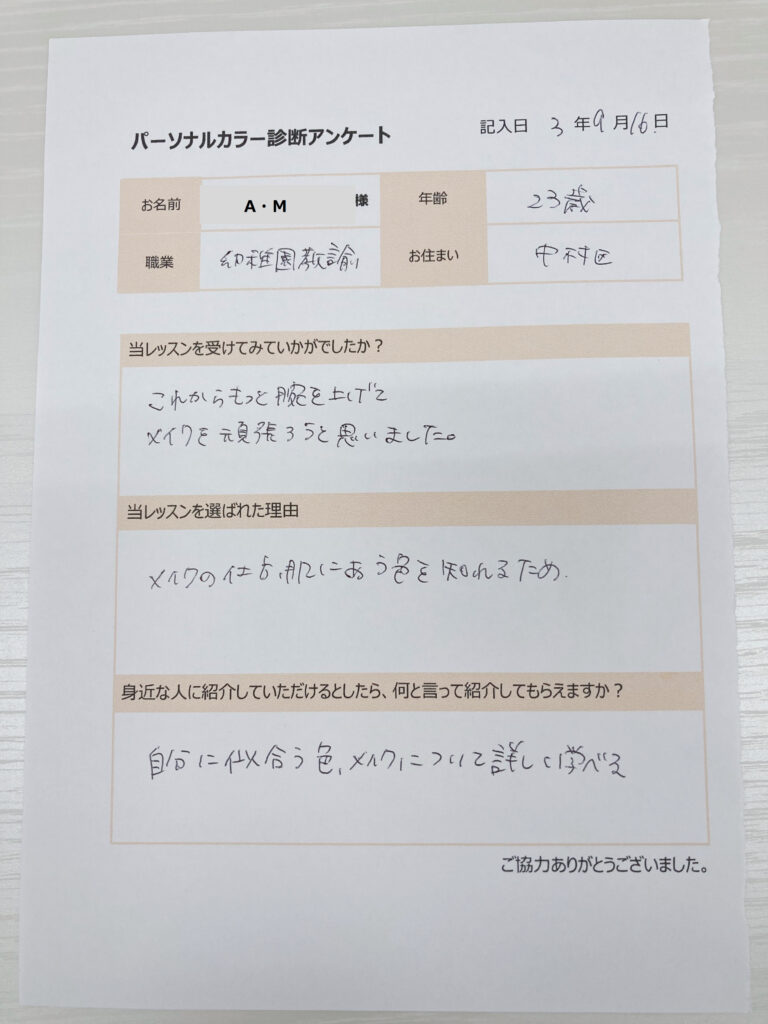 パーソナルカラー診断アンケート
記入日 3年9月16日
お名前 A・M 様
年齢 23歳
職業 幼稚園教諭
お住まい 中村区
当レッスンを受けてみていかがでしたか？
これからもっと腕を上げて
メイクを頑張ろうと思いました。
当レッスンを選ばれた理由
メイクの仕方、肌にあう色を知れるため.
身近な人に紹介していただけるとしたら、何と言って紹介してもらえますか？
自分に似合う色、メイクについて詳しく学べる
ご協力ありがとうございました。